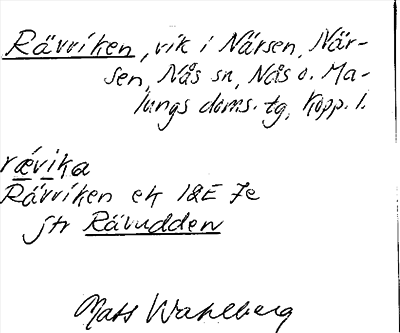 Rävviken, vik i Närsen, När-
sen, Nås sn, Nås o. Ma-
lungs doms. tg, Kopp. l.
rævika
Rävviken ek 12E 7e
jfr Rävudden
Mats Wahlberg